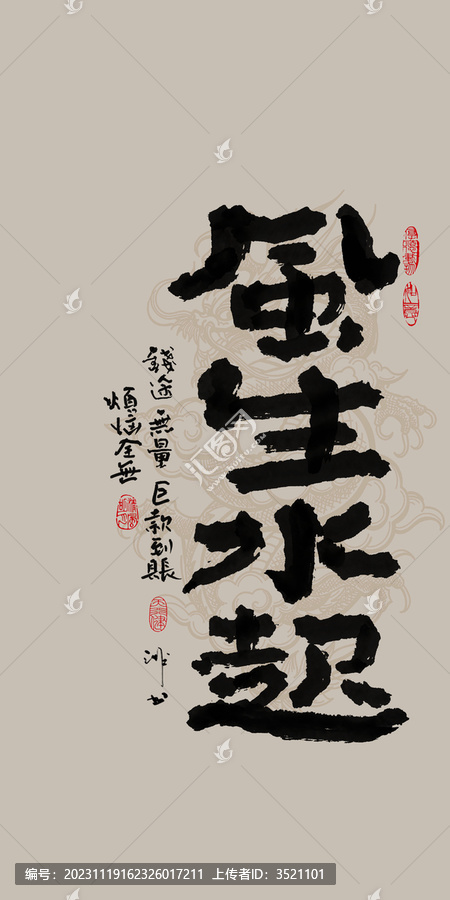 風生水起
錢途無量 巨款到賬
煩惱全無
编号：20231119162326017211 上传者ID：3521101